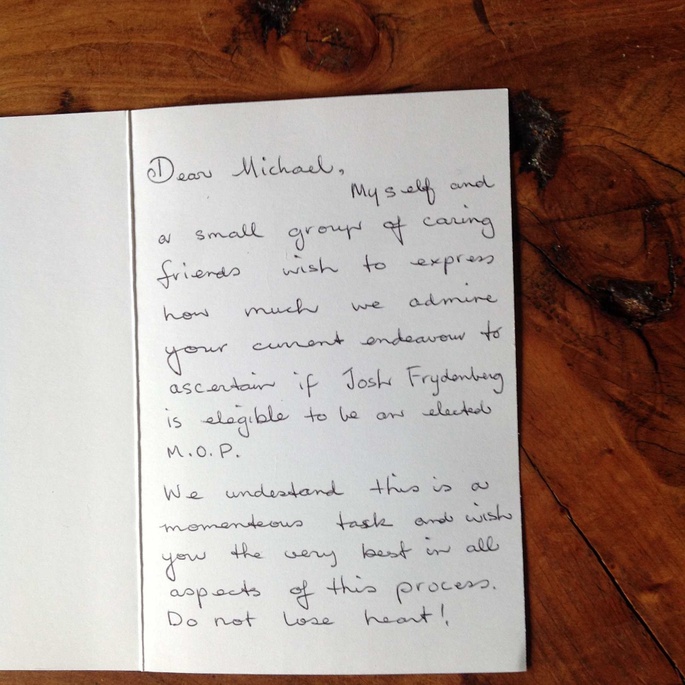 Dear Michael,
Myself and
a small group of caring
friends wish to express
how much we admire
your current endeavour to
ascertain if Josh Frydenberg
is elegible to be an elected
M.O.P.
We undestand this is a
momenteous task and wish
you the very best in all
aspects of this process.
Do not lose heart!